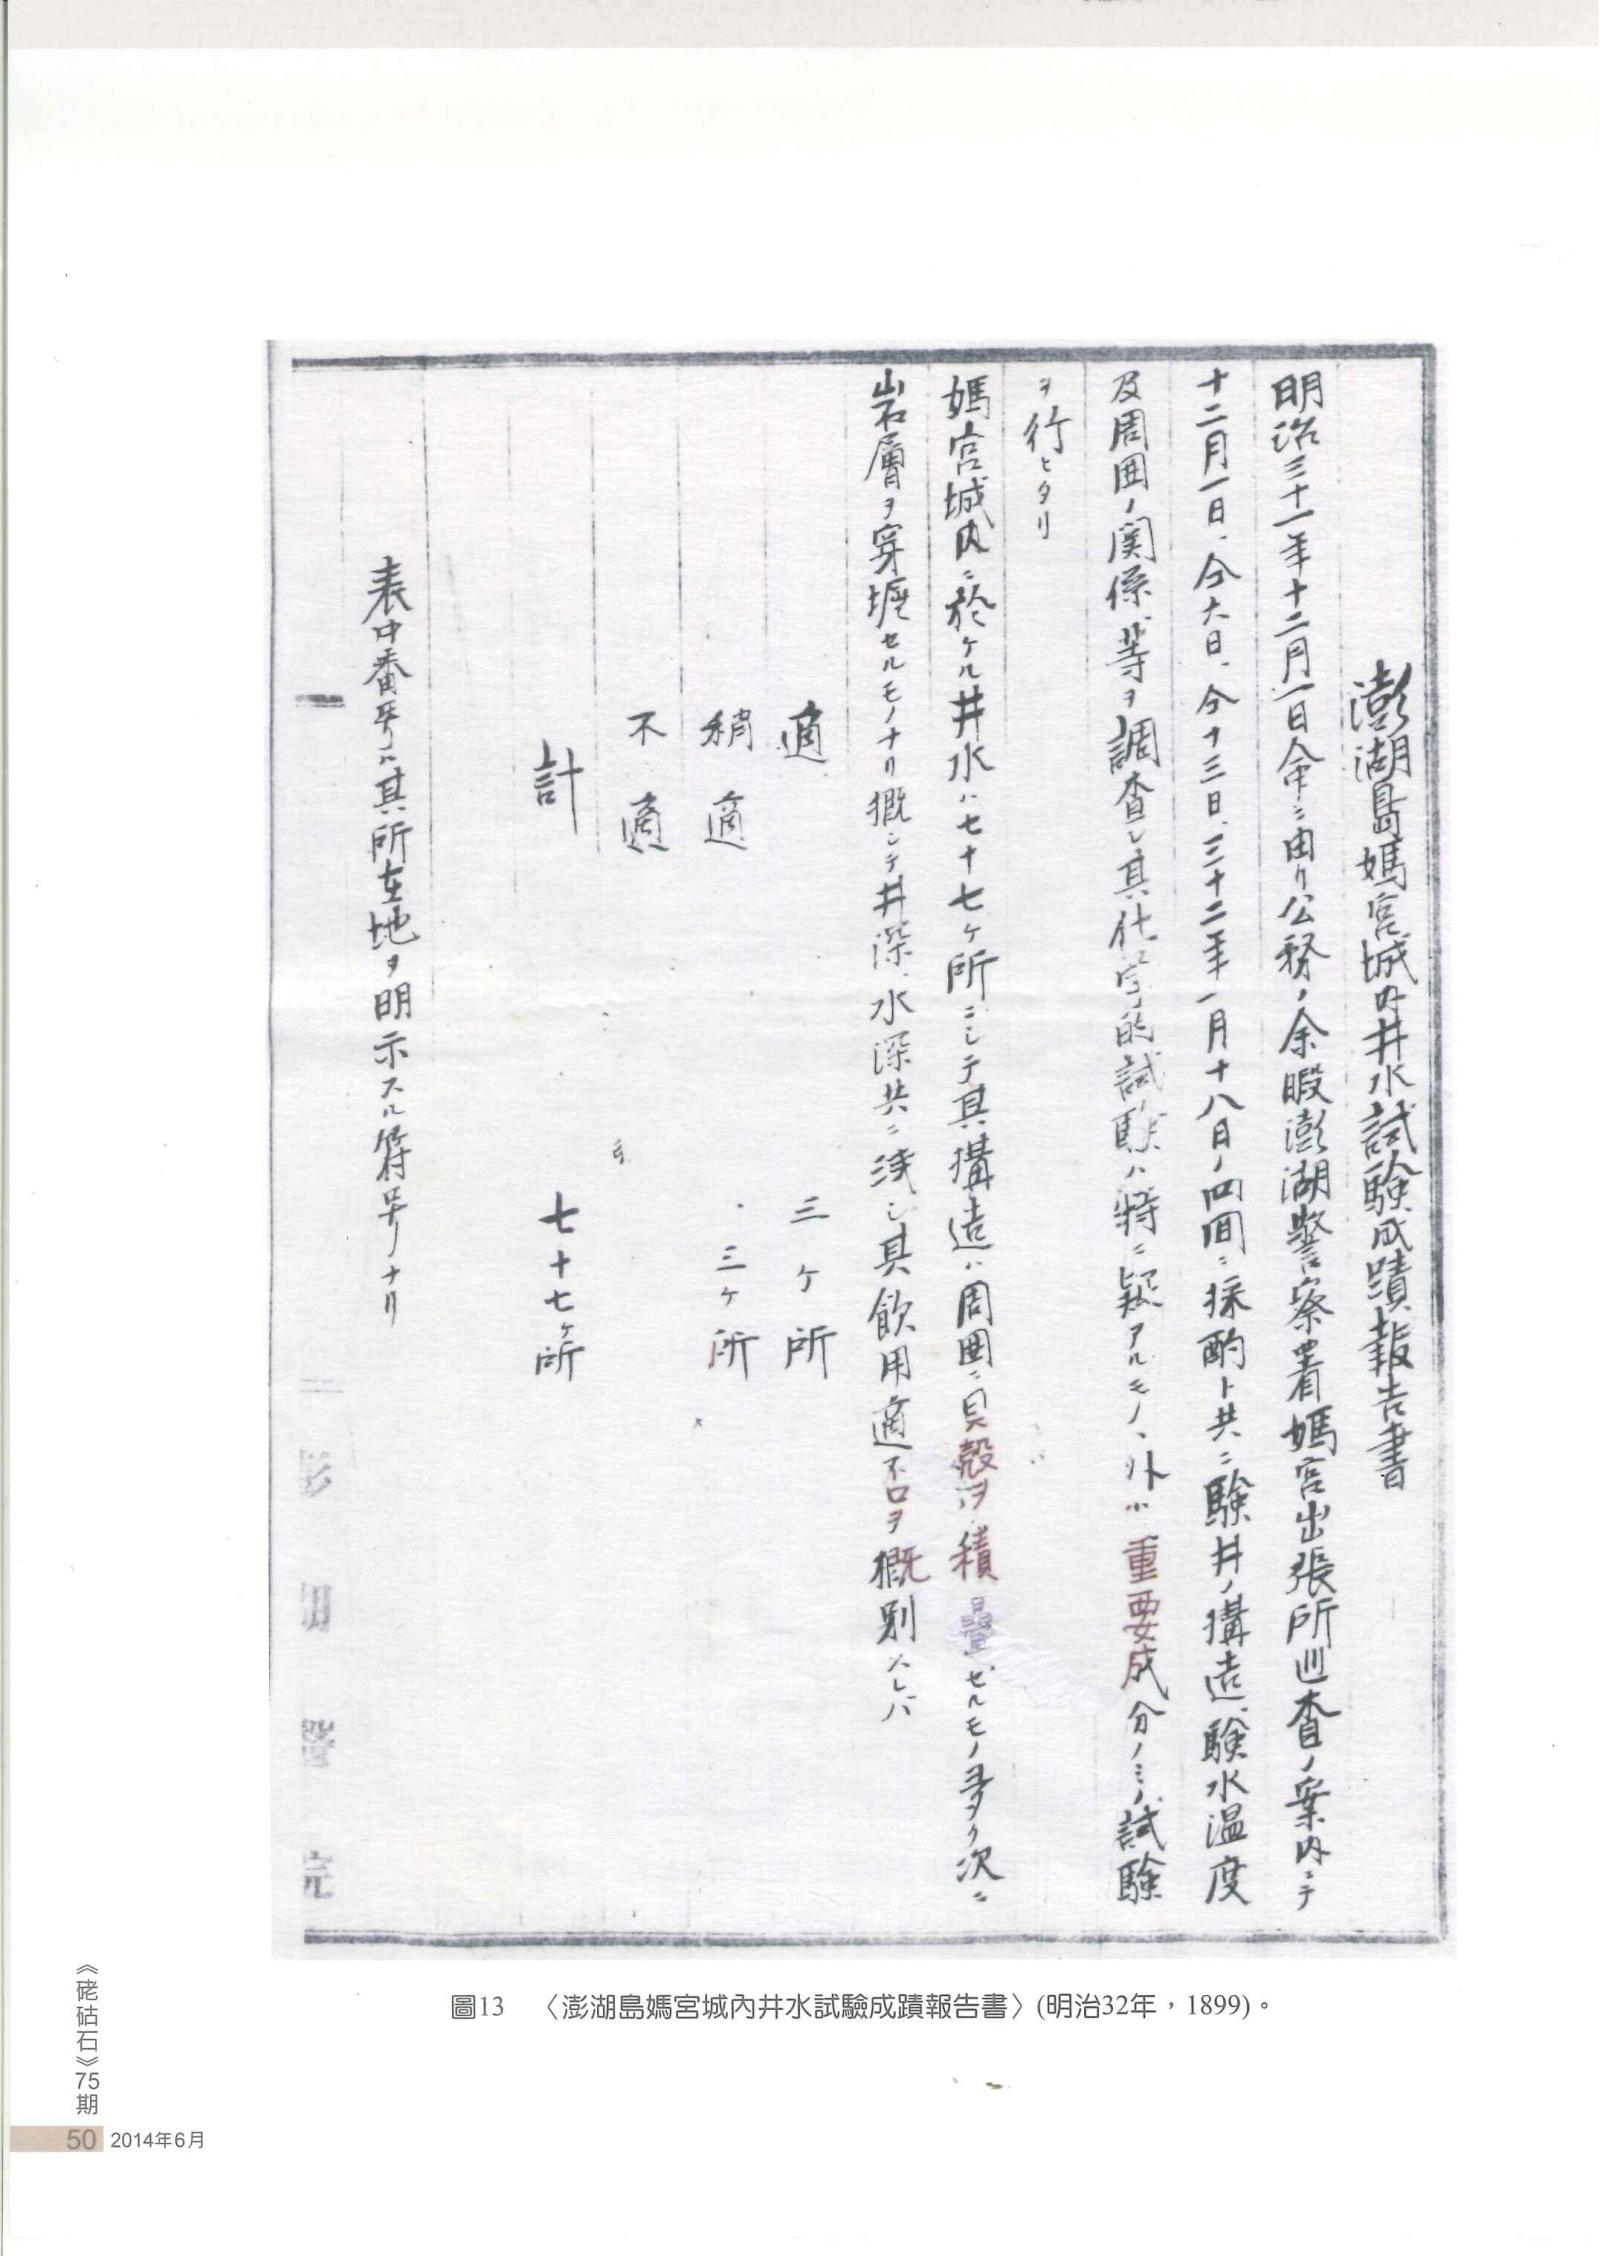 澎湖島媽宮城内井水試驗成蹟報告書
明治三十一年十二月一日命ニ由リ公務ノ余暇澎湖警察署媽宮出張所巡査ノ案内ニテ
十二月一日、仝六日、仝十三日、三十二年一月十八日ノ四回ニ採酌ト共ニ験井ノ構造、験水温度
及周囲ノ関係等ヲ調査シ其化学的試験ハ特ニ疑アルモノヽ外ハ重要成分ノミノ試験
ヲ行ヒタリ
媽宮城内ニ於ケル井水ハ七十七ヶ所ニシテ其構造ハ周囲ニ貝殻ヲ積疊セルモノ多ク次ニ
岩層ヲ穿掘セルモノナリ概シテ井深、水深共ニ浅シ其飲用適不否ヲ概別スレバ
適 三ヶ所
稍適 三ヶ所
不適
計 七十七ヶ所
表中番号ハ其所在地ヲ明示スル符号ナリ
醫院
圖13 〈澎湖島媽宮城內井水試驗成蹟報告書〉(明治32年，1899)。
《硓𥑮石》75期
50 2014年6月